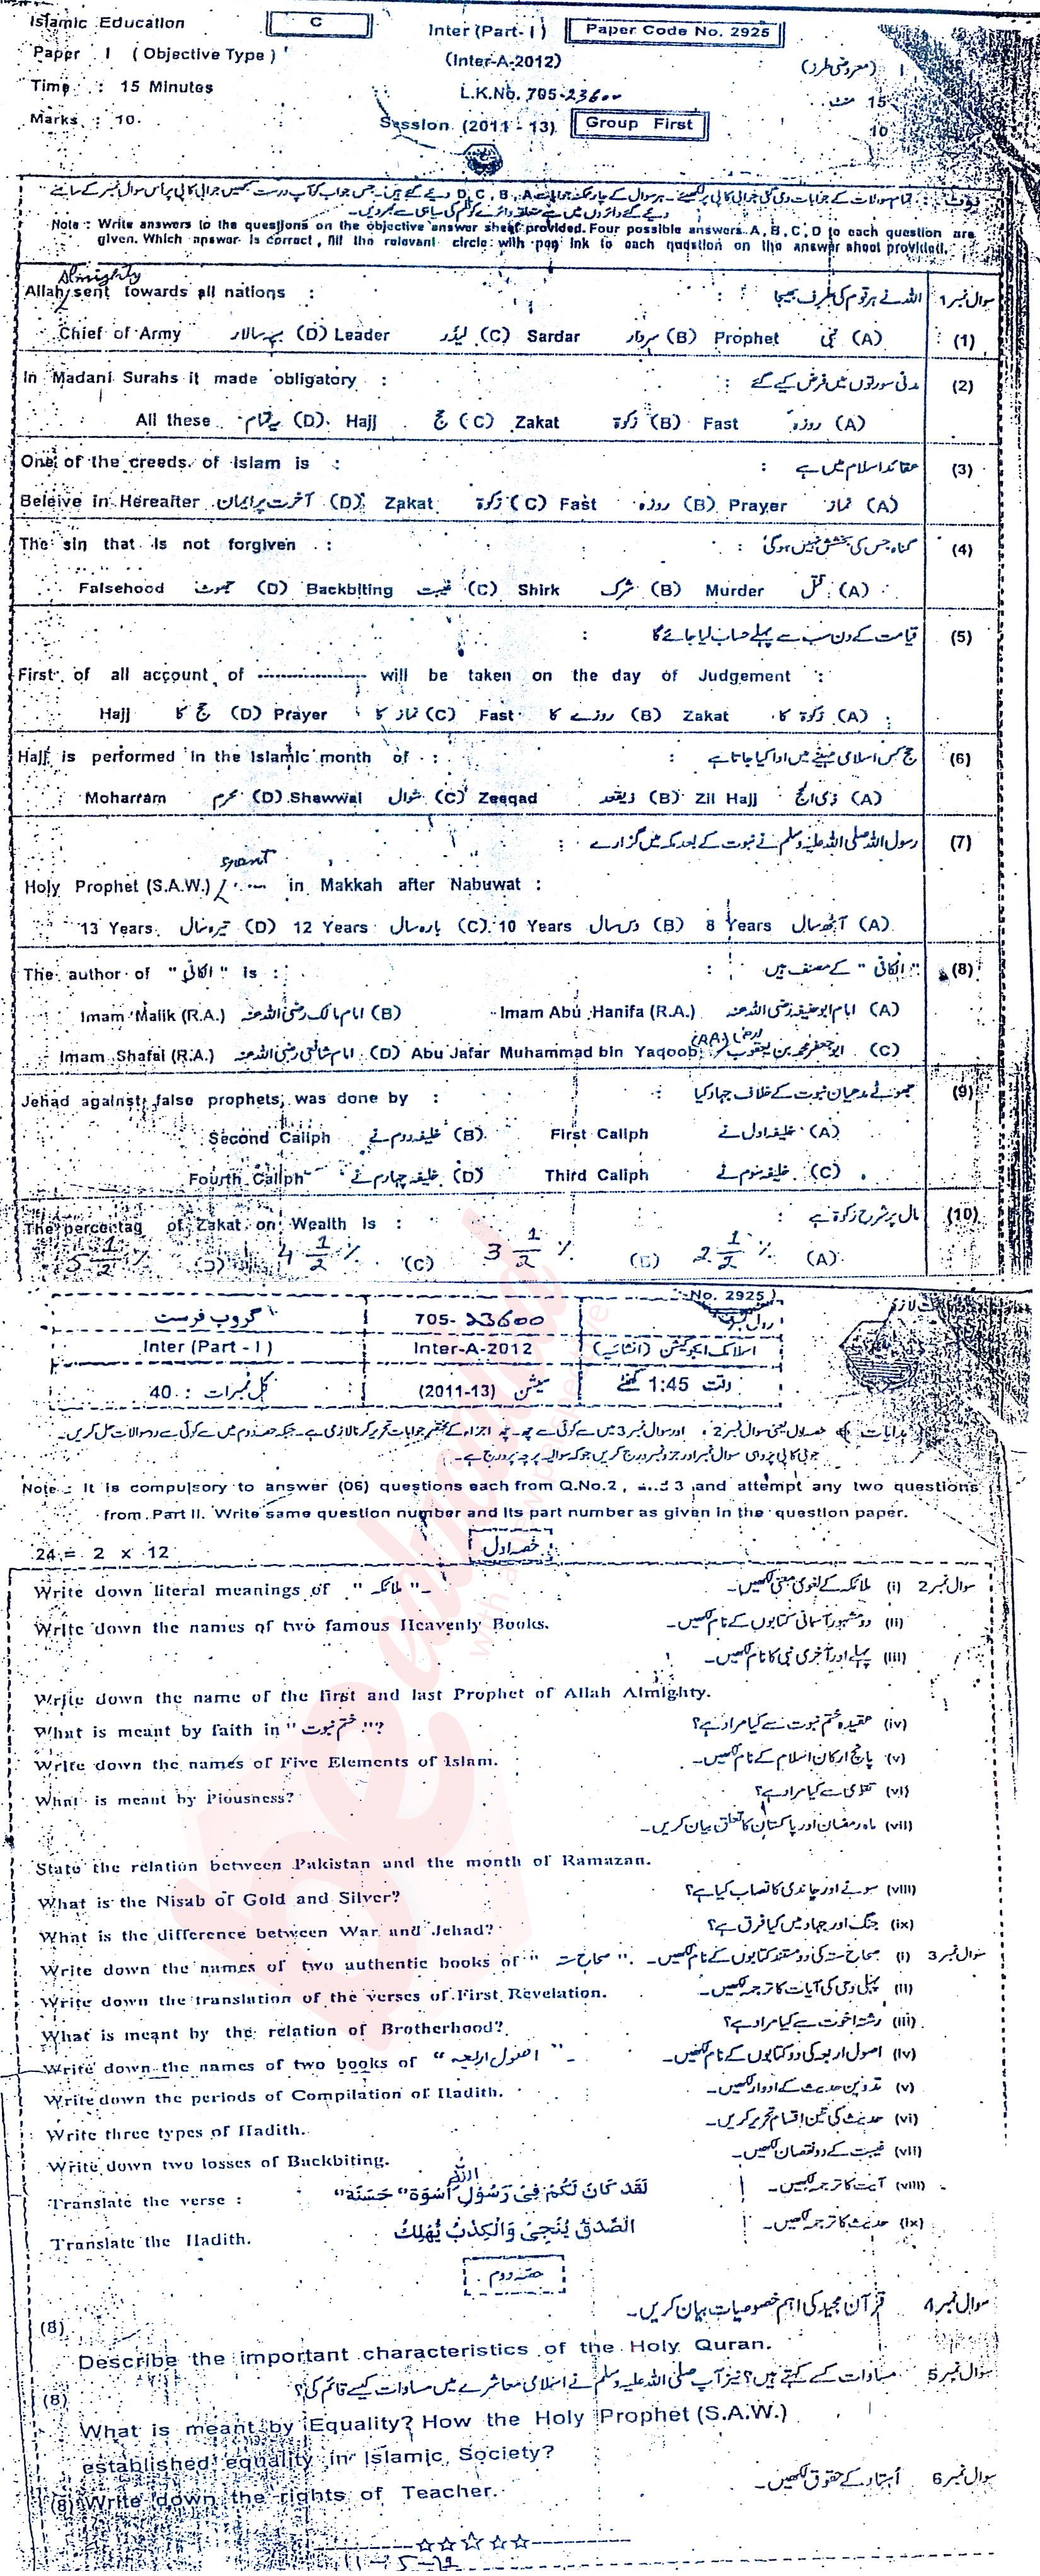 Islamic Education C Inter (Part- I) Paper Code No. 2925
Paper I ( Objective Type ) (Inter-A-2012) I (معروضی طرز)
Time : 15 Minutes L.K.No. 705-23600 15 منٹ
Marks : 10 Session (2011 - 13) Group First 10
Note : Write answers to the questions on the objective answer sheet provided. Four possible answers A, B, C, D to each question are
given. Which answer is correct, fill the relevant circle with pen ink to each question on the answer sheet provided.
Almighty
Allah sent towards all nations : اللہ نے ہر قوم کی طرف بھیجا : سوال نمبر 1
Chief of Army سپہ سالار (D) Leader لیڈر (C) Sardar سردار (B) Prophet نبی (A) (1)
In Madani Surahs it made obligatory : مدنی سورتوں میں فرض کیے گئے : (2)
All these یہ تمام (D) Hajj حج (C) Zakat زکوٰۃ (B) Fast روزہ (A)
One of the creeds of Islam is : عقائد اسلام میں ہے : (3)
Beleive in Hereafter آخرت پر ایمان (D) Zakat زکوٰۃ (C) Fast روزہ (B) Prayer نماز (A)
The sin that is not forgiven : گناہ جس کی بخشش نہیں ہوگی : (4)
Falsehood جھوٹ (D) Backbiting غیبت (C) Shirk شرک (B) Murder قتل (A)
قیامت کے دن سب سے پہلے حساب لیا جائے گا : (5)
First of all account of ------------------ will be taken on the day of Judgement :
Hajj حج کا (D) Prayer نماز کا (C) Fast روزے کا (B) Zakat زکوٰۃ کا (A)
Hajj is performed in the Islamic month of : حج کس اسلامی مہینے میں ادا کیا جاتا ہے : (6)
Moharram محرم (D) Shawwal شوال (C) Zeeqad ذیقعد (B) Zil Hajj ذی الحج (A)
رسول اللہ صلی اللہ علیہ وسلم نے نبوت کے بعد مکہ میں گزارے : (7)
spent
Holy Prophet (S.A.W.) ---- in Makkah after Nabuwat :
13 Years تیرہ سال (D) 12 Years بارہ سال (C) 10 Years دس سال (B) 8 Years آٹھ سال (A)
The author of "الکافی" is : "الکافی" کے مصنف ہیں : (8)
Imam Malik (R.A.) امام مالک رضی اللہ عنہ (B) Imam Abu Hanifa (R.A.) امام ابوحنیفہ رضی اللہ عنہ (A)
Imam Shafai (R.A.) امام شافعی رضی اللہ عنہ (D) Abu Jafar Muhammad bin Yaqoob (RA) ابو جعفر محمد بن یعقوب (C)
Jehad against false prophets was done by : جھوٹے مدعیان نبوت کے خلاف جہاد کیا : (9)
Second Caliph خلیفہ دوم نے (B) First Caliph خلیفہ اول نے (A)
Fourth Caliph خلیفہ چہارم نے (D) Third Caliph خلیفہ سوم نے (C)
The percentag of Zakat on Wealth is : مال پر شرح زکوٰۃ ہے : (10)
5 1/2 % (D) 4 1/2 % (C) 3 1/2 % (B) 2 1/2 % (A)
No. 2925
گروپ فرسٹ 705-23600 رول نمبر
Inter (Part - I) Inter-A-2012 اسلامک ایجوکیشن (انشائیہ)
کل نمبرات : 40 سیشن (2011-13) وقت 1:45 گھنٹے
Note : It is compulsory to answer (06) questions each from Q.No.2, 3 and attempt any two questions
from Part II. Write same question number and its part number as given in the question paper.
24 = 2 x 12 حصہ اول
Write down literal meanings of "ملائکہ" سوال نمبر 2 (i) ملائکہ کے لغوی معنی لکھیں۔
Write down the names of two famous Heavenly Books. (ii) دو مشہور آسمانی کتابوں کے نام لکھیں۔
(iii) پہلے اور آخری نبی کا نام لکھیں۔
Write down the name of the first and last Prophet of Allah Almighty.
What is meant by faith in "ختم نبوت"? (iv) عقیدہ ختم نبوت سے کیا مراد ہے؟
Write down the names of Five Elements of Islam. (v) پانچ ارکان اسلام کے نام لکھیں۔
What is meant by Piousness? (vi) تقویٰ سے کیا مراد ہے؟
(vii) ماہ رمضان اور پاکستان کا تعلق بیان کریں۔
State the relation between Pakistan and the month of Ramazan.
What is the Nisab of Gold and Silver? (viii) سونے اور چاندی کا نصاب کیا ہے؟
What is the difference between War and Jehad? (ix) جنگ اور جہاد میں کیا فرق ہے؟
Write down the names of two authentic books of "صحاح ستہ". سوال نمبر 3 (i) صحاح ستہ کی دو مستند کتابوں کے نام لکھیں۔
Write down the translation of the verses of First Revelation. (ii) پہلی وحی کی آیات کا ترجمہ لکھیں۔
What is meant by the relation of Brotherhood? (iii) رشتہ اخوت سے کیا مراد ہے؟
Write down the names of two books of "اصول اربعہ" (iv) اصول اربعہ کی دو کتابوں کے نام لکھیں۔
Write down the periods of Compilation of Hadith. (v) تدوین حدیث کے ادوار لکھیں۔
Write three types of Hadith. (vi) حدیث کی تین اقسام تحریر کریں۔
Write down two losses of Backbiting. (vii) غیبت کے دو نقصان لکھیں۔
Translate the verse : لَقَدْ كَانَ لَكُمْ فِىْ رَسُوْلِ اللّٰهِ اُسْوَةٌ حَسَنَةٌ (viii) آیت کا ترجمہ لکھیں۔
Translate the Hadith. الصِّدْقُ يُنْجِىْ وَالْكِذْبُ يُهْلِكُ (ix) حدیث کا ترجمہ لکھیں۔
حصہ دوم
(8) سوال نمبر 4 قرآن مجید کی اہم خصوصیات بیان کریں۔
Describe the important characteristics of the Holy Quran.
(8) سوال نمبر 5 مساوات کسے کہتے ہیں؟ نیز آپ صلی اللہ علیہ وسلم نے اسلامی معاشرے میں مساوات کیسے قائم کی؟
What is meant by Equality? How the Holy Prophet (S.A.W.)
established equality in Islamic Society?
سوال نمبر 6 اُستاد کے حقوق لکھیں۔
(8) Write down the rights of Teacher.